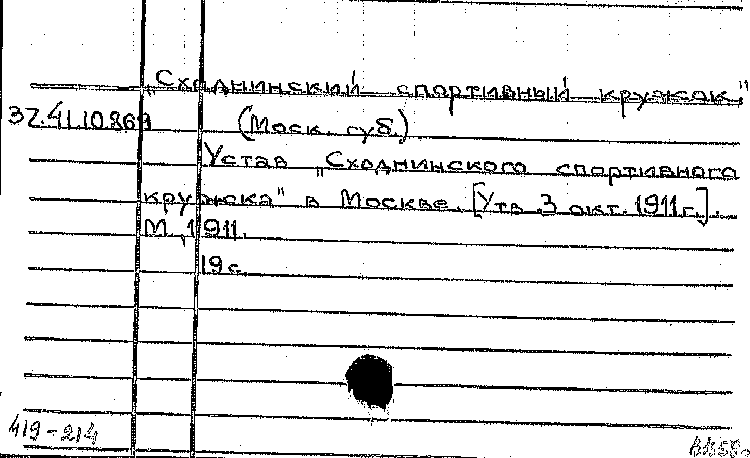 „Сходнинский спортивный кружок"
37.41.10.869 (Моск. губ.)
Устав „Сходнинского спортивного
кружка" в Москве. [Утв. 3 окт. 1911 г.].
М., 1911.
19 с.
419-214